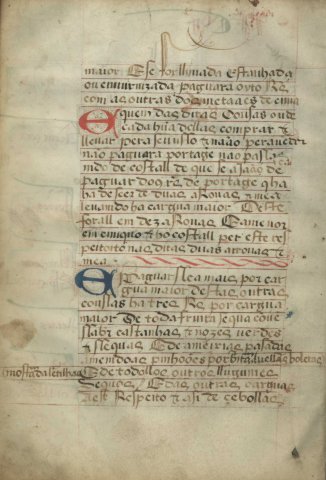 maior E se for lumada Estanhada
ou enuirnizada paguara oyto Rs
com as outras dos metaaes de cima
E quem das ditas Cousas ou de
cada huũa dellas comprar &
leuar pera seu uso & nam pera uender
nam paguara portage nam passam
do de costall de que se aja de
paguar dos rs de portage que ha
de ser de duas arrouas & mea
leuando ha cargua maior Deste
forall em dez arrouas E a menor
em cinquo & ho costall per este res
peito nas ditas duas arrouas &
mea
E Paguar se a mais por car
gua maior destas outras
cousas ha tres Rs por cargua
maior De toda fruita sequa conue
castanhas & nozes uerdes
& sequas E de ameixias pasadas
amendoas pinhões por britar auellãas boletas
mostarda lentilhas E de todollos outros legumes
Sequos E das outras carguas
a este Respeito & asi de cebollas